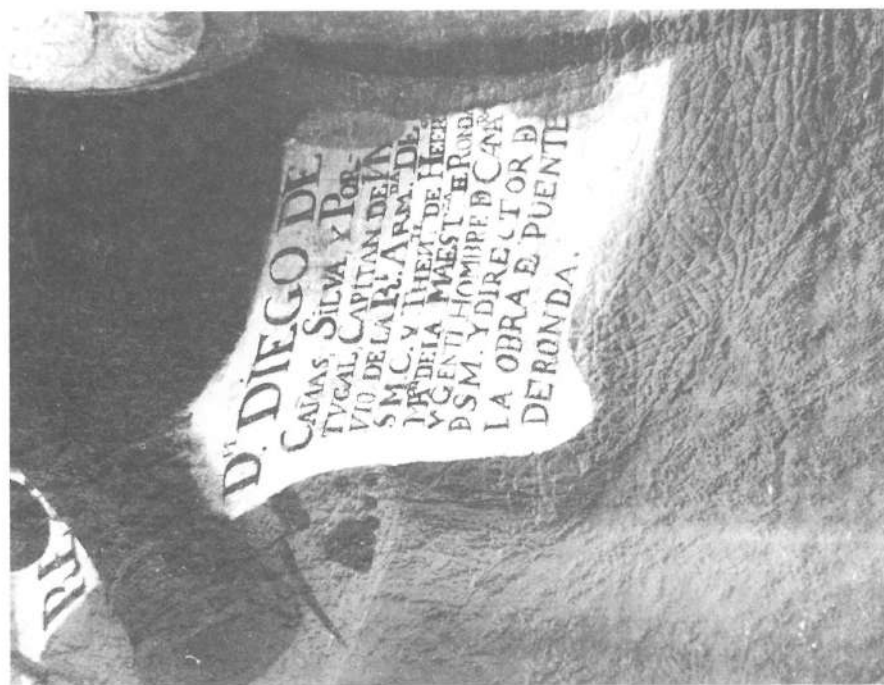 Dn. DIEGO DE
CAÑAS, SILVA, Y POR-
TVGAL, CAPITAN DE NA
VIO DE LA Rl. ARMda. DE
S M. C. Y THENte. DE
DE LA MAEST RONDA
Y GENTI HOMBRE D CAMRA
D S M. Y DIRECTOR D
LA OBRA E PUENTE
DE RONDA.